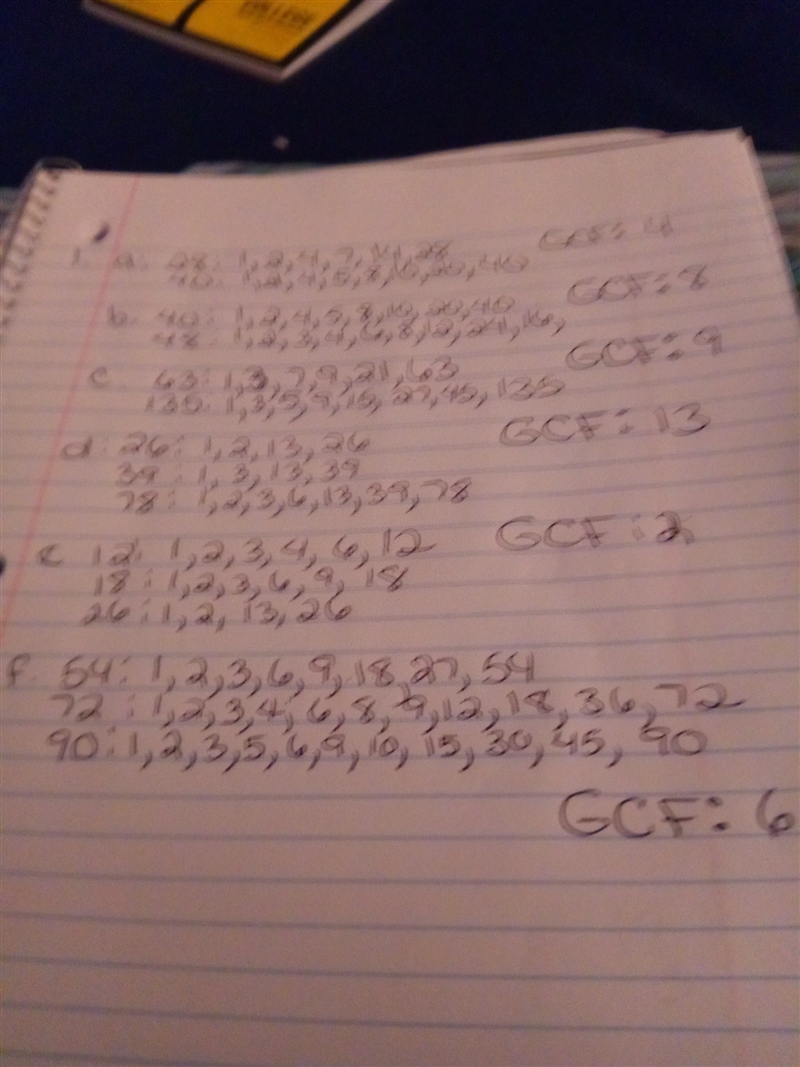 COLLEGE
1. a. 28: 1,2,4,7,14,28 GCF: 4
40: 1,2,4,5,8,10,20,40
b. 40: 1,2,4,5,8,10,20,40 GCF: 8
48: 1,2,3,4,6,8,12,24,16,
c 63: 1,3,7,9,21,63 GCF: 9
135: 1,3,5,9,15,27,45,135
d. 26: 1,2,13,26 GCF: 13
39: 1,3,13,39
78: 1,2,3,6,13,39,78
e 12: 1,2,3,4,6,12 GCF: 2
18: 1,2,3,6,9,18
26: 1,2,13,26
f. 54: 1,2,3,6,9,18,27,54
72: 1,2,3,4,6,8,9,12,18,36,72
90: 1,2,3,5,6,9,10,15,30,45,90
GCF: 6